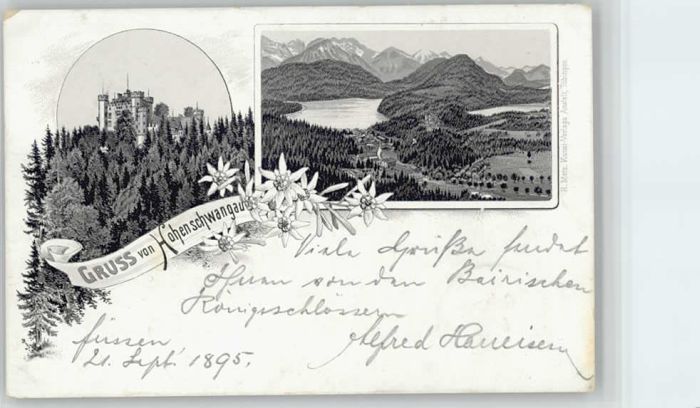 GRUSS von Hohenschwangau
R. Metz, Kunst-Verlags Anstalt, Tübingen.
Viele Grüße sendet
Ihnen von den Bairischen
Königsschlössern
Füssen
21. Sept. 1895.
Alfred